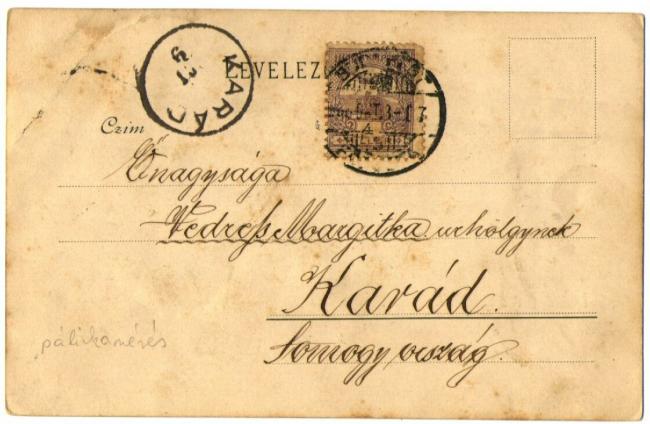 KARÁD
LEVELEZ
Czim
Őnagysága
Vedress Margitka urhölgynek
Karád.
Somogyország.
pálinkamérés